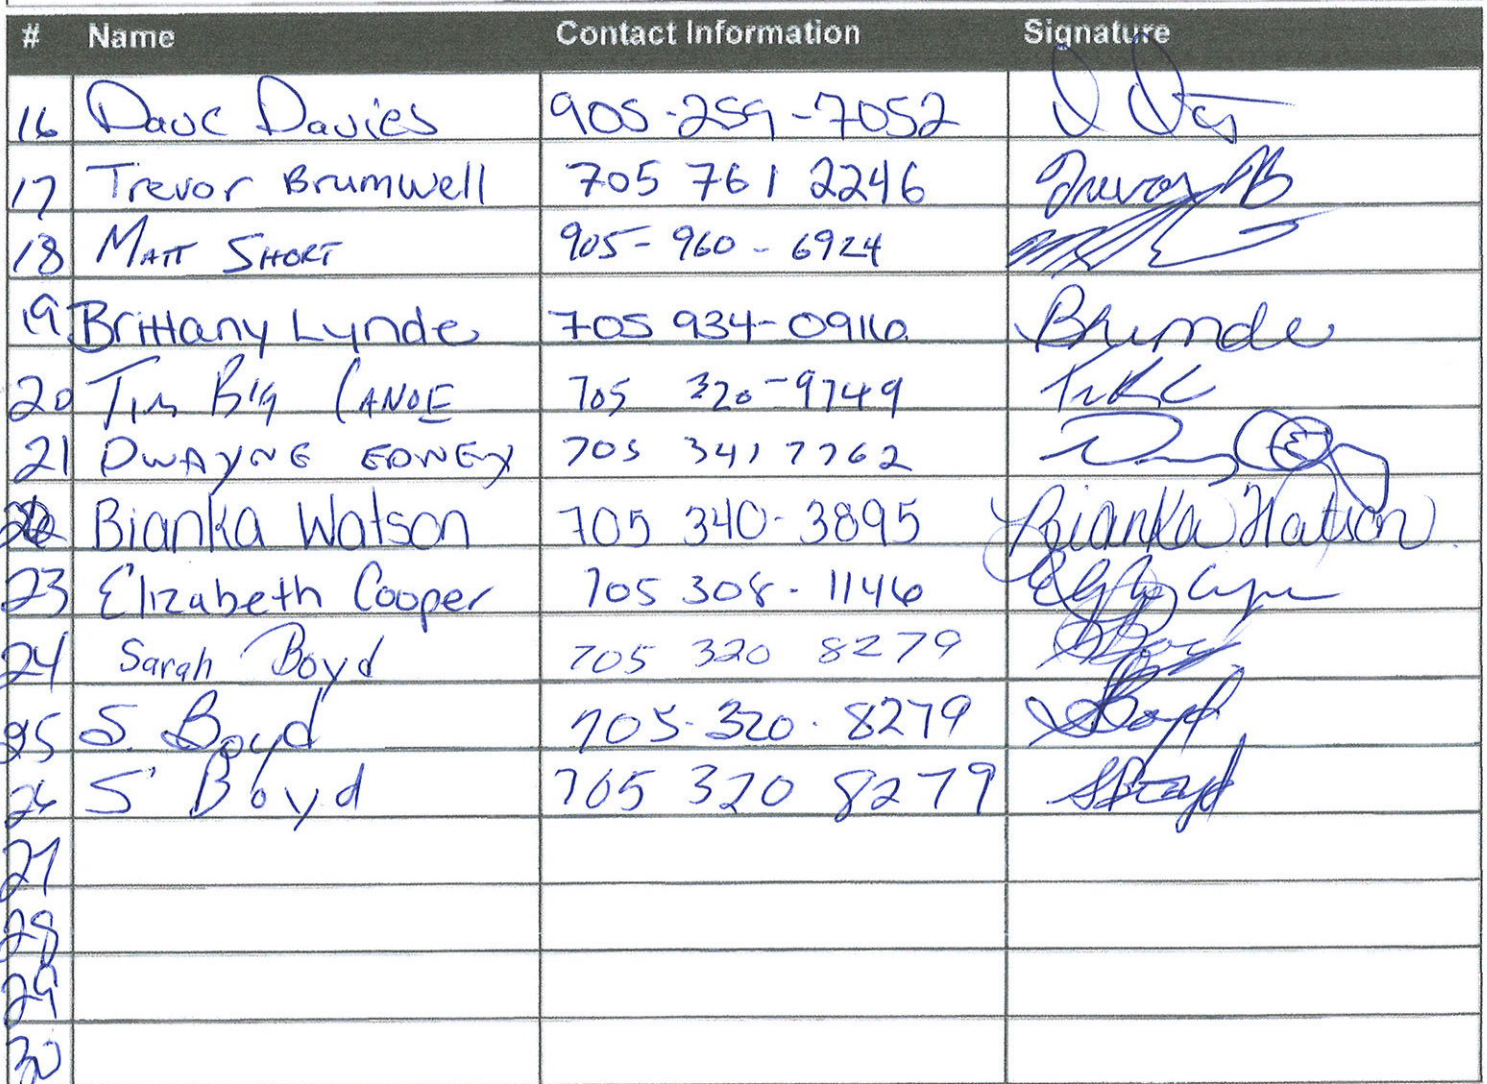 # Name Contact Information Signature
16 Dave Davies 905-259-7052
17 Trevor Brumwell 705 761 2246 Trevor B
18 MATT SHORT 905-960-6924
19 Brittany Lynde 705 934-0916
20 Tim Big CANOE 705 320-9749
21 DWAYNE EDNEY 705 341 7762
22 Bianka Watson 705 340-3895 Bianka Watson
23 Elizabeth Cooper 705 308-1146
24 Sarah Boyd 705 320 8279
25 S. Boyd 705-320-8279 SBoyd
26 S Boyd 705 320 8279 SBoyd
27
28
29
30